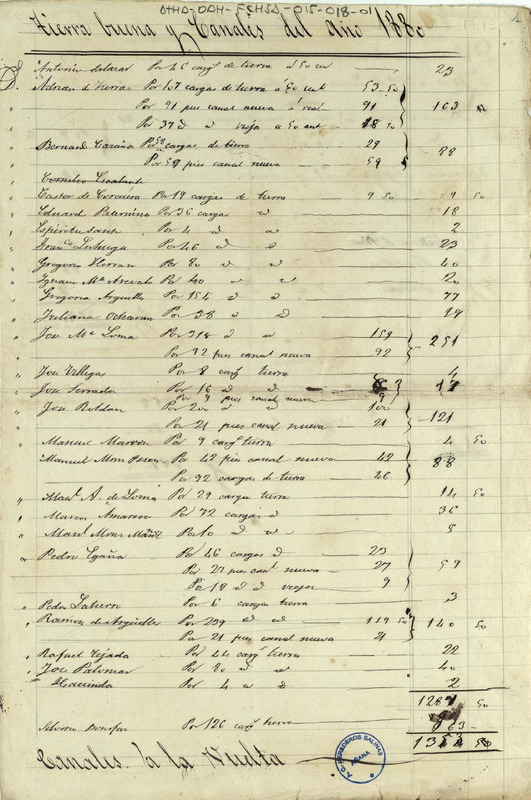 OTHA-DDH-FCHSA-015-018-01
Tierra buena y Canales del Año 1880
Antonio Salazar Por 46 cargs de tierra á 50 cen 23
Adrian d Herran Por 107 cargas de tierra á 50 cent 53.50
Por 91 pies canal nueva á real 91 163
Por 37 d d vieja a 50 cent 18 50
Bernard Por 58 cargas de tierra 29
Por 59 pies canal nueva 59 88
Cornelio Escalante
Castor de Corcuera Por 19 cargas de tierra 9 50 9 50
Eduard Por 36 cargas d 18
Espiritu Santo Por 4 d d 2
Franco Por 46 d d 23
Gregorio Herran Por 80 d d 40
Ignacio Ma Arevalo Por 40 d d 20
Gregoria Arguelles Por 154 d d 77
Juliana Ocharan Por 38 d d 19
Jose Ma Loma Por 318 d d 159
Por 92 pies canal nueva 92 251
Jose Villega Por 8 cargs tierra 4
Jose Serrada Por 16 d d 8
Por 9 pies canal nueva 9 17
Jose Roldan Por 200 d d 100
Por 21 pies canal nueva 21 121
Manuel Por 9 cargs tierra 4 50
Manuel Por 42 pies canal nueva 42
Por 92 cargas de tierra 46 88
Manl A. de Loma Por 29 cargas tierra 14 50
Marcos Por 72 cargas d 36
Manl Por 10 d d 5
Pedro Egaña Por 46 cargas d 23
Por 27 pies canl nueva 27 59
Por 18 d d viejas 9
Pedro Por 6 cargas tierra 3
Ramon de Arguelles Por 239 d d 119 50
Por 21 pies canal nueva 21 140 50
Rafael Tejada Por 44 cargs tierra 22
Jose Palomar Por 80 d d 40
Hacienda Por 4 d d 2
1287 50
Por 126 cargs tierra 63
50
Canales a la Vuelta
A.C. HEREDEROS SALINAS
AÑANA